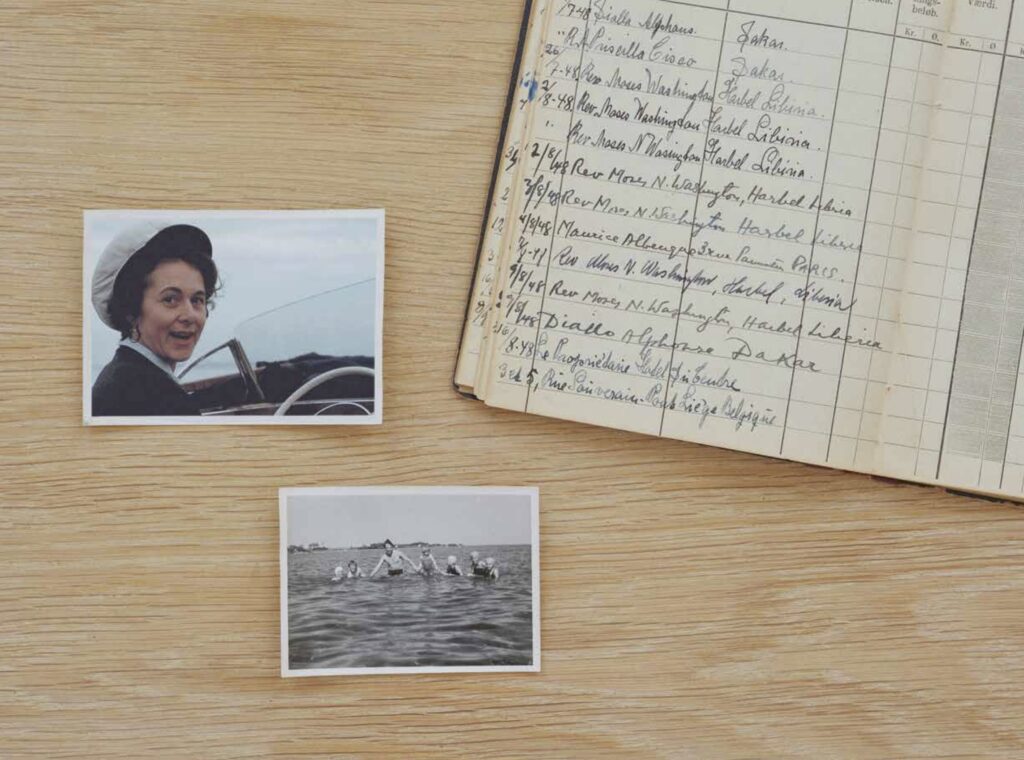 ings-
beløb. Værdi.
Kr. Ø Kr. Ø
7-48 Dialla Alphons. Dakar.
" Priscilla Cisco Dakar.
7-48 Rev. Moses Washington Harbel Libiria.
2/8-48. Rev. Moses Washington Harbel Libiria.
" Rev. Moses N Wasington Harbel Libiria.
2/8/48 Rev Moses N. Washington, Harbel Liberia
3/8/48 Rev Moses N Washington Harbel Liberia
4/8/48 Maurice Albengue 3 rue PARIS.
Rev Moses N. Washington, Harbel, Liberia
9/8/48 Rev Moses N. Washington, Harbel Liberia
Diallo Alphonse DaKar
8-48 Le Propriétaire Hotel du Centre
5, Rue Souverain-Pont Liège Belgique